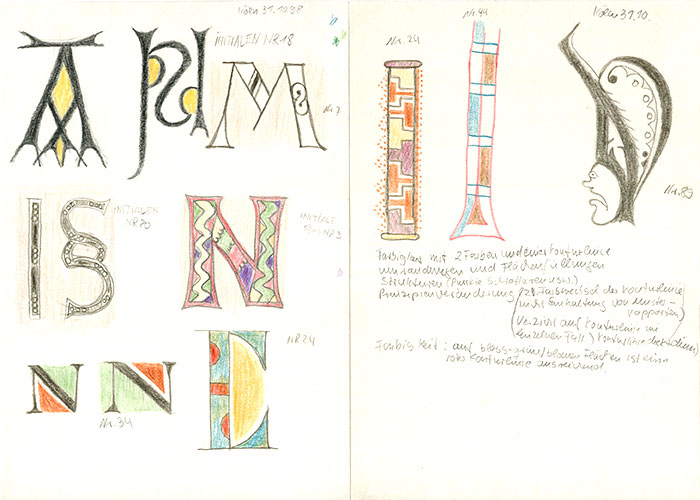 Köln 31.10 98
INITIALEN NR 18
A
N
M
Nr. 7
IS
INITIALEN
NR 20
N
INITIALE
N
N
Nr. 34
NR 24
D
Nr. 24
Nr. 44
Köln 31.10.
Nr. 83
Farbigkeit mit 2 Farben und einer Konturlinie
und Flächenfüllungen
Strukturen (Punkte Schraffuren usw.)
Prinzipienveränderung (z.B. Farbwechsel der Konturlinie
nicht Einhaltung von Muster-
rapporten
Verzicht auf Konturlinie im
einzelnen Fall) Konturlinie
Farbigkeit: auf blass-grün/blauen Flächen ist eine
rote Konturlinie ausreichend.